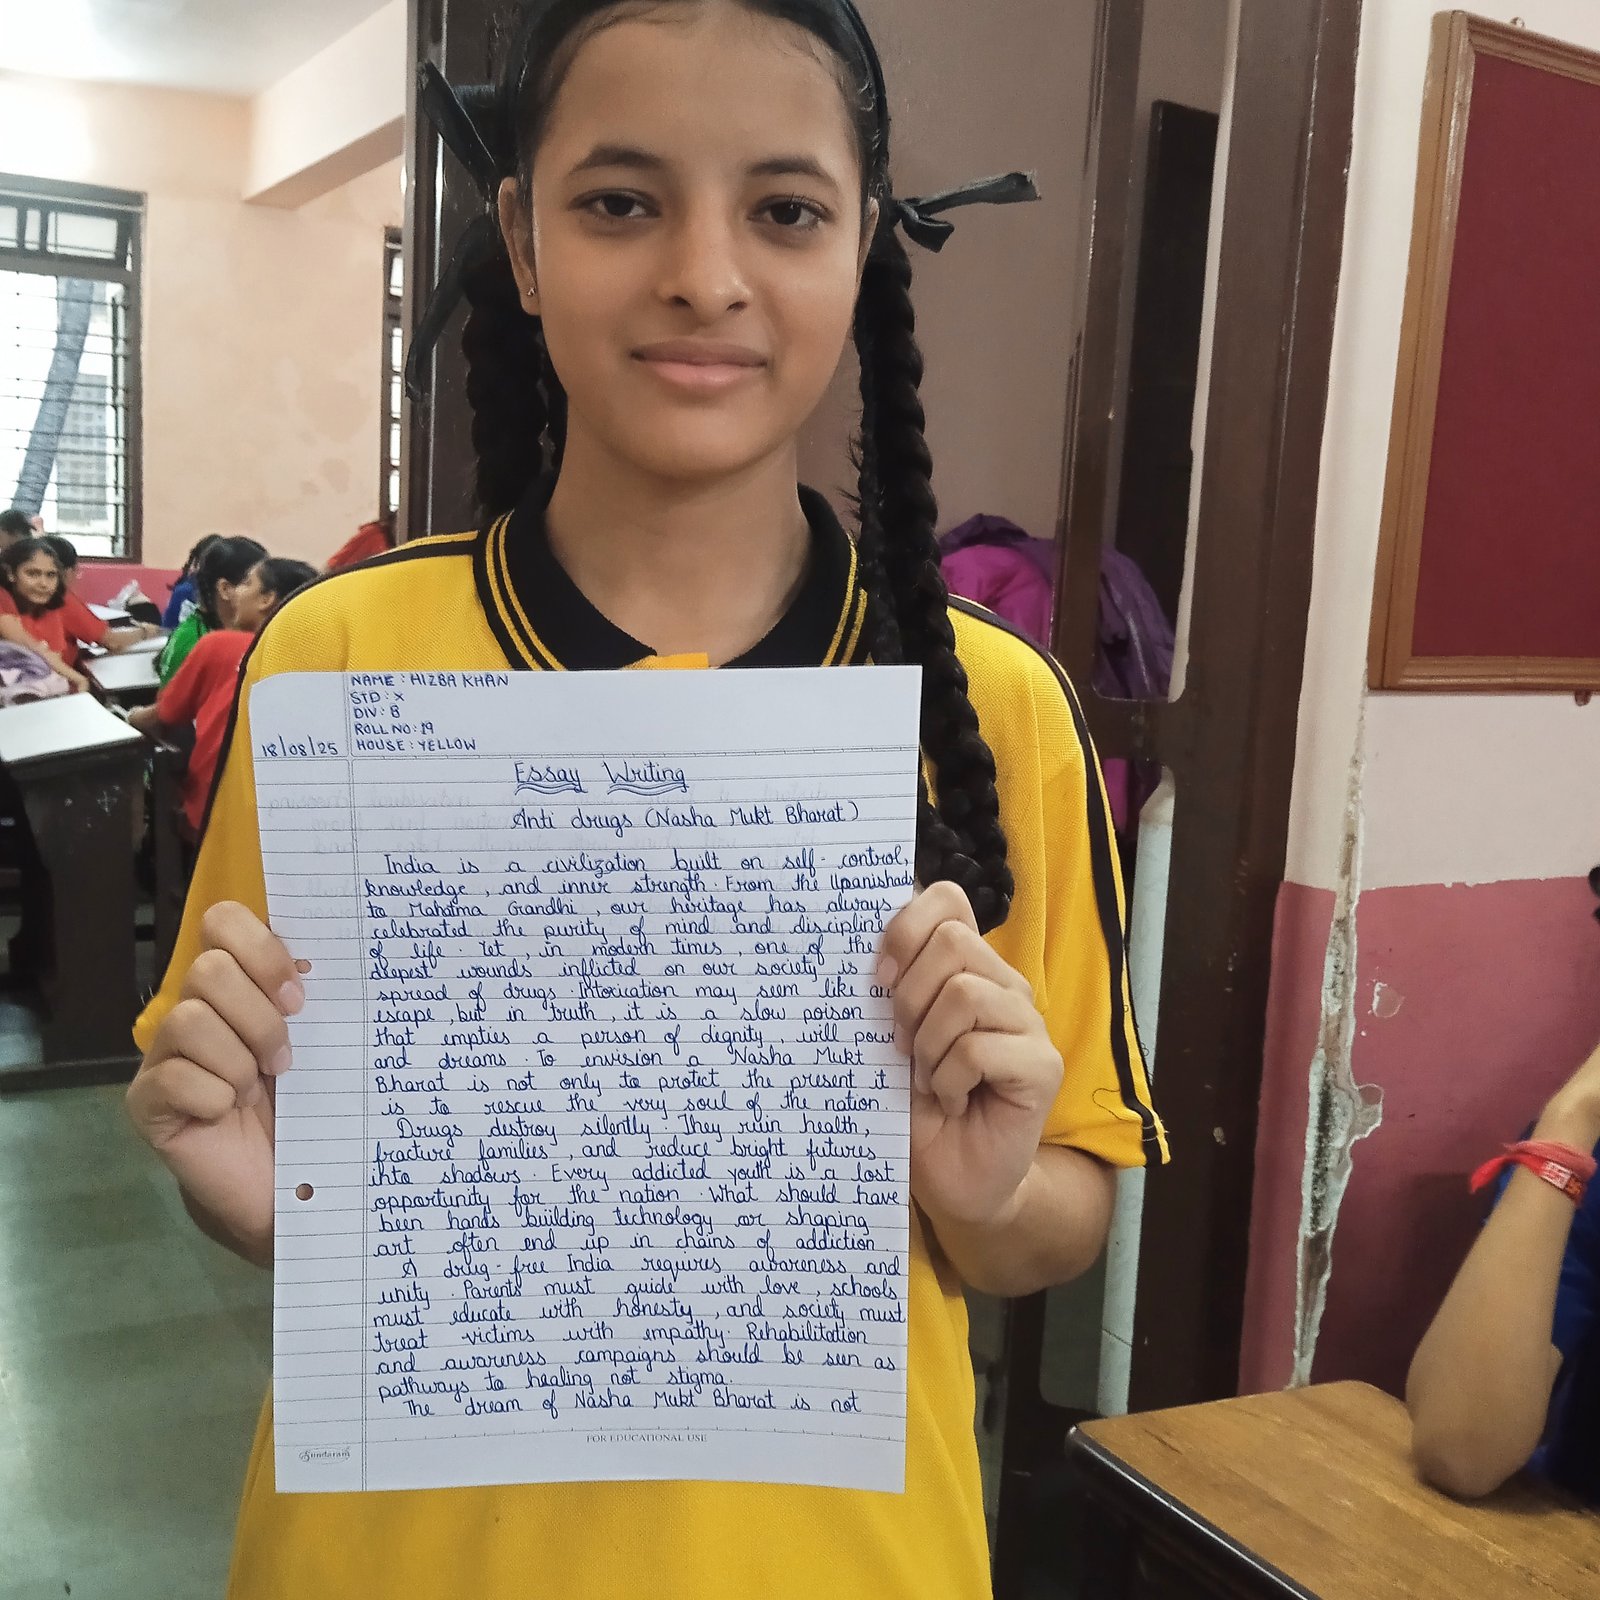 NAME : HIZBA KHAN
STD : X
DIV : B
ROLL NO : 19
18/08/25 HOUSE : YELLOW
Essay Writing
Anti drugs (Nasha Mukt Bharat)
India is a civilization built on self-control,
knowledge, and inner strength. From the Upanishads
to Mahatma Gandhi, our heritage has always
celebrated the purity of mind and discipline
of life. Yet, in modern times, one of the
deepest wounds inflicted on our society is
spread of drugs. Intoxication may seem like an
escape, but in truth, it is a slow poison
that empties a person of dignity, will power
and dreams. To envision a Nasha Mukt
Bharat is not only to protect the present it
is to rescue the very soul of the nation.
Drugs destroy silently. They ruin health,
fracture families, and reduce bright futures
into shadows. Every addicted youth is a lost
opportunity for the nation. What should have
been hands building technology or shaping
art often end up in chains of addiction.
A drug-free India requires awareness and
unity. Parents must guide with love, schools
must educate with honesty, and society must
treat victims with empathy. Rehabilitation
and awareness campaigns should be seen as
pathways to healing not stigma.
The dream of Nasha Mukt Bharat is not
FOR EDUCATIONAL USE
Sundaram